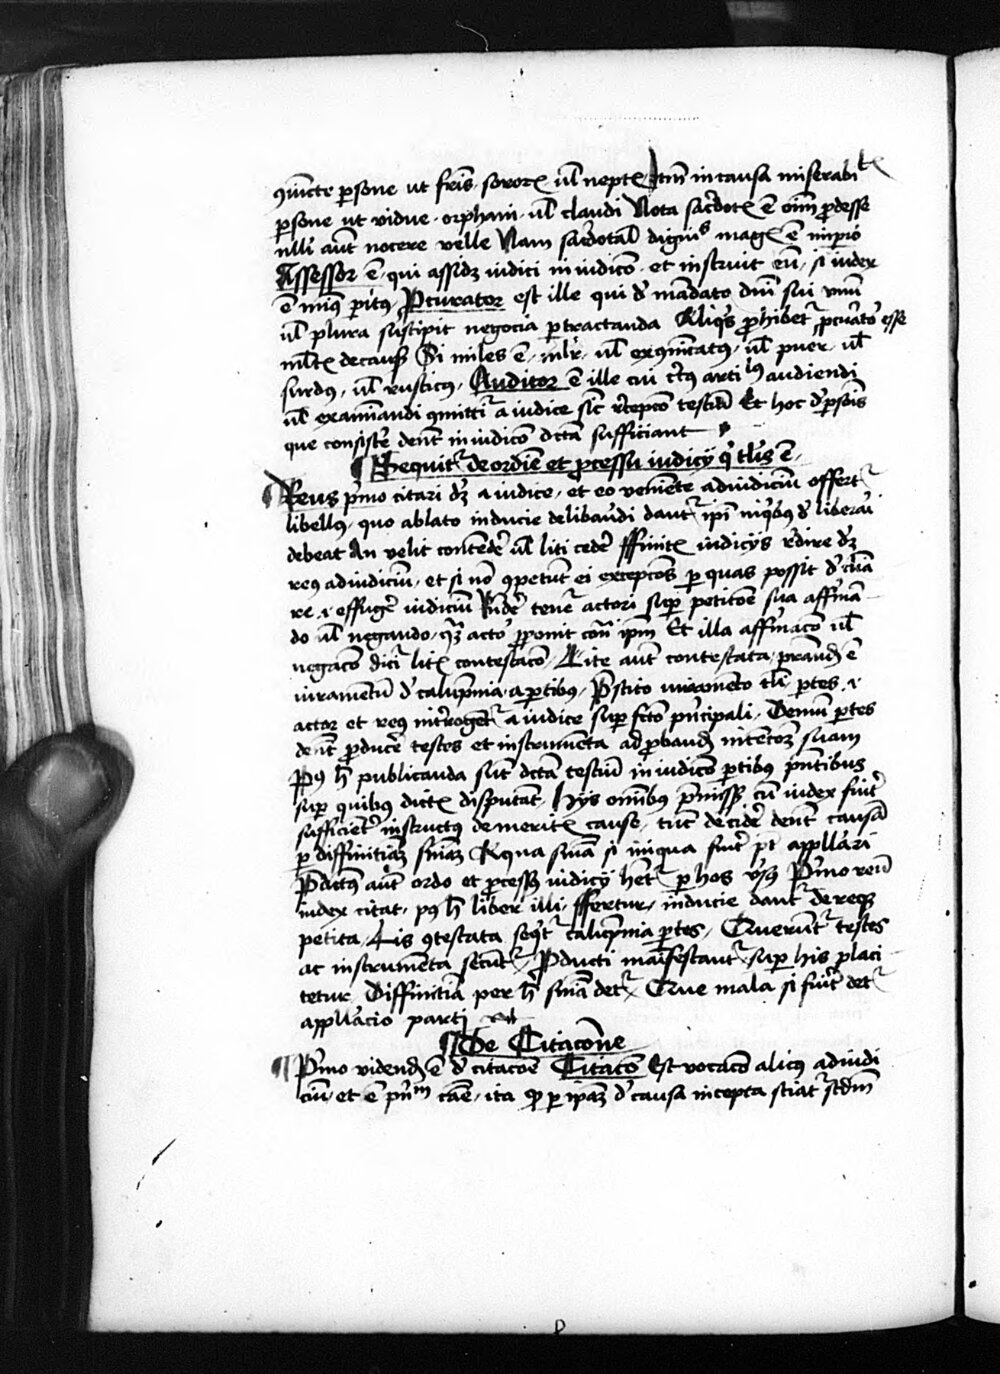 9iuncte ꝑsone ut fr̄is soror̄ ul̄ nept̄ Itm̄ in causa miserabil̄
ꝑsone ut vidue orphani ul̄ claudi Nota sac̄dot̄ ē oīm ꝓdesse
nulli aūt nocere velle Nam sac̄dotal̄ dignit̄s maḡ ē imperio
Assessor ē qui assidʒ iudici in iudicō et instruit eū si iudex
ē min9 ꝑit9 Ꝓcurator est ille qui d̄ mādato dn̄i sui vnū
ul̄ plura suscipit negocia ꝑtractanda Aliq's ꝓhibet̄ ꝓcuāto' esse
mlt̄ de caus̄ Si miles ē ml'r ul̄ excōīcat9 ul̄ puer ul̄
surd9 ul̄ rustic9 Auditor ē ille cui cāus arti'l9 audiendi
ul̄ examinandi 9mitti' a iudice sic̄ recepcō testiū Et hoc d̄ ꝑsōis
que consiste' dent̄ in iudicō dcā sufficiant
¶ Sequit̄ de ordiē et ꝓcessu iudicij q' tl̄is ē
Reus p'mo citari dʒ a iudice et eo veniente ad iudiciū offert̄
libell9 quo ablato inducie delibandi dant̄ ipī in q'bus d̄liberai
debeat An velit contende' ul̄ liti cede' ffinit̄ inducijs redire dʒ
re9 ad iudiciū et si nō 9petunt ei excepcōs ꝑ quas possit d̄cliā
re et effuge' iudiciū Rn̄de' tene' actori suꝑ peticōe sua affirmā
do ul̄ negando qʒ acto' ꝓponit con̄ ipm̄ Et illa affirmacō ul̄
negacō dici' lit̄ contestacō Lite aūt contestata prand̄ ē
iuramentū d̄ calūpnia a ꝑtibus Prestito iuramento tn̄ ꝑtes et
actor et re9 inte'rogent̄ a iudice suꝑ fctō p'ncipali Demū ꝑtes
dent̄ ꝓduce' testes et instrumenta ad ꝓband̄ intencōʒ suam
P9 h̄ publicanda sūt dctā testiū in iudicō ꝑtibus pn̄tibus
suꝑ quibus dict̄ disputant Hijs omībus p'miss̄ cū iudex fuit̄
sufficient̄ instruct9 de merit̄ cause tūc decide' dent̄ causā
ꝑ diffinitiāʒ sniāʒ A qua snīa si iniqua fuit̄ pt̄ appellari
Pdict9 aūt ordo et ꝓcess9 iudicij het̄ ꝑ hos vs9 P'mo reū
iudex citat p9 h̄ liber illi ffertur inducie dant̄ de reqʒ
petita Lis 9testata seqt̄ calūpnia ꝑtes Querunt̄ testes
ac instrumenta secunt̄ Ꝓducti manifestant̄ suꝑ his placi
tetur Diffinitiā per h̄ snīa det̄ Que mala si fuit̄ det̄
appellacio parti
¶ De Citacōne
¶ P'mo vidend̄ ē d̄ citacōe Citacō Est vocacō alic9 ad iudi
ciū et ē pn̄m cāē ita qd ꝑ ipāʒ d̄ causa incepta sciat̄ scdm̄